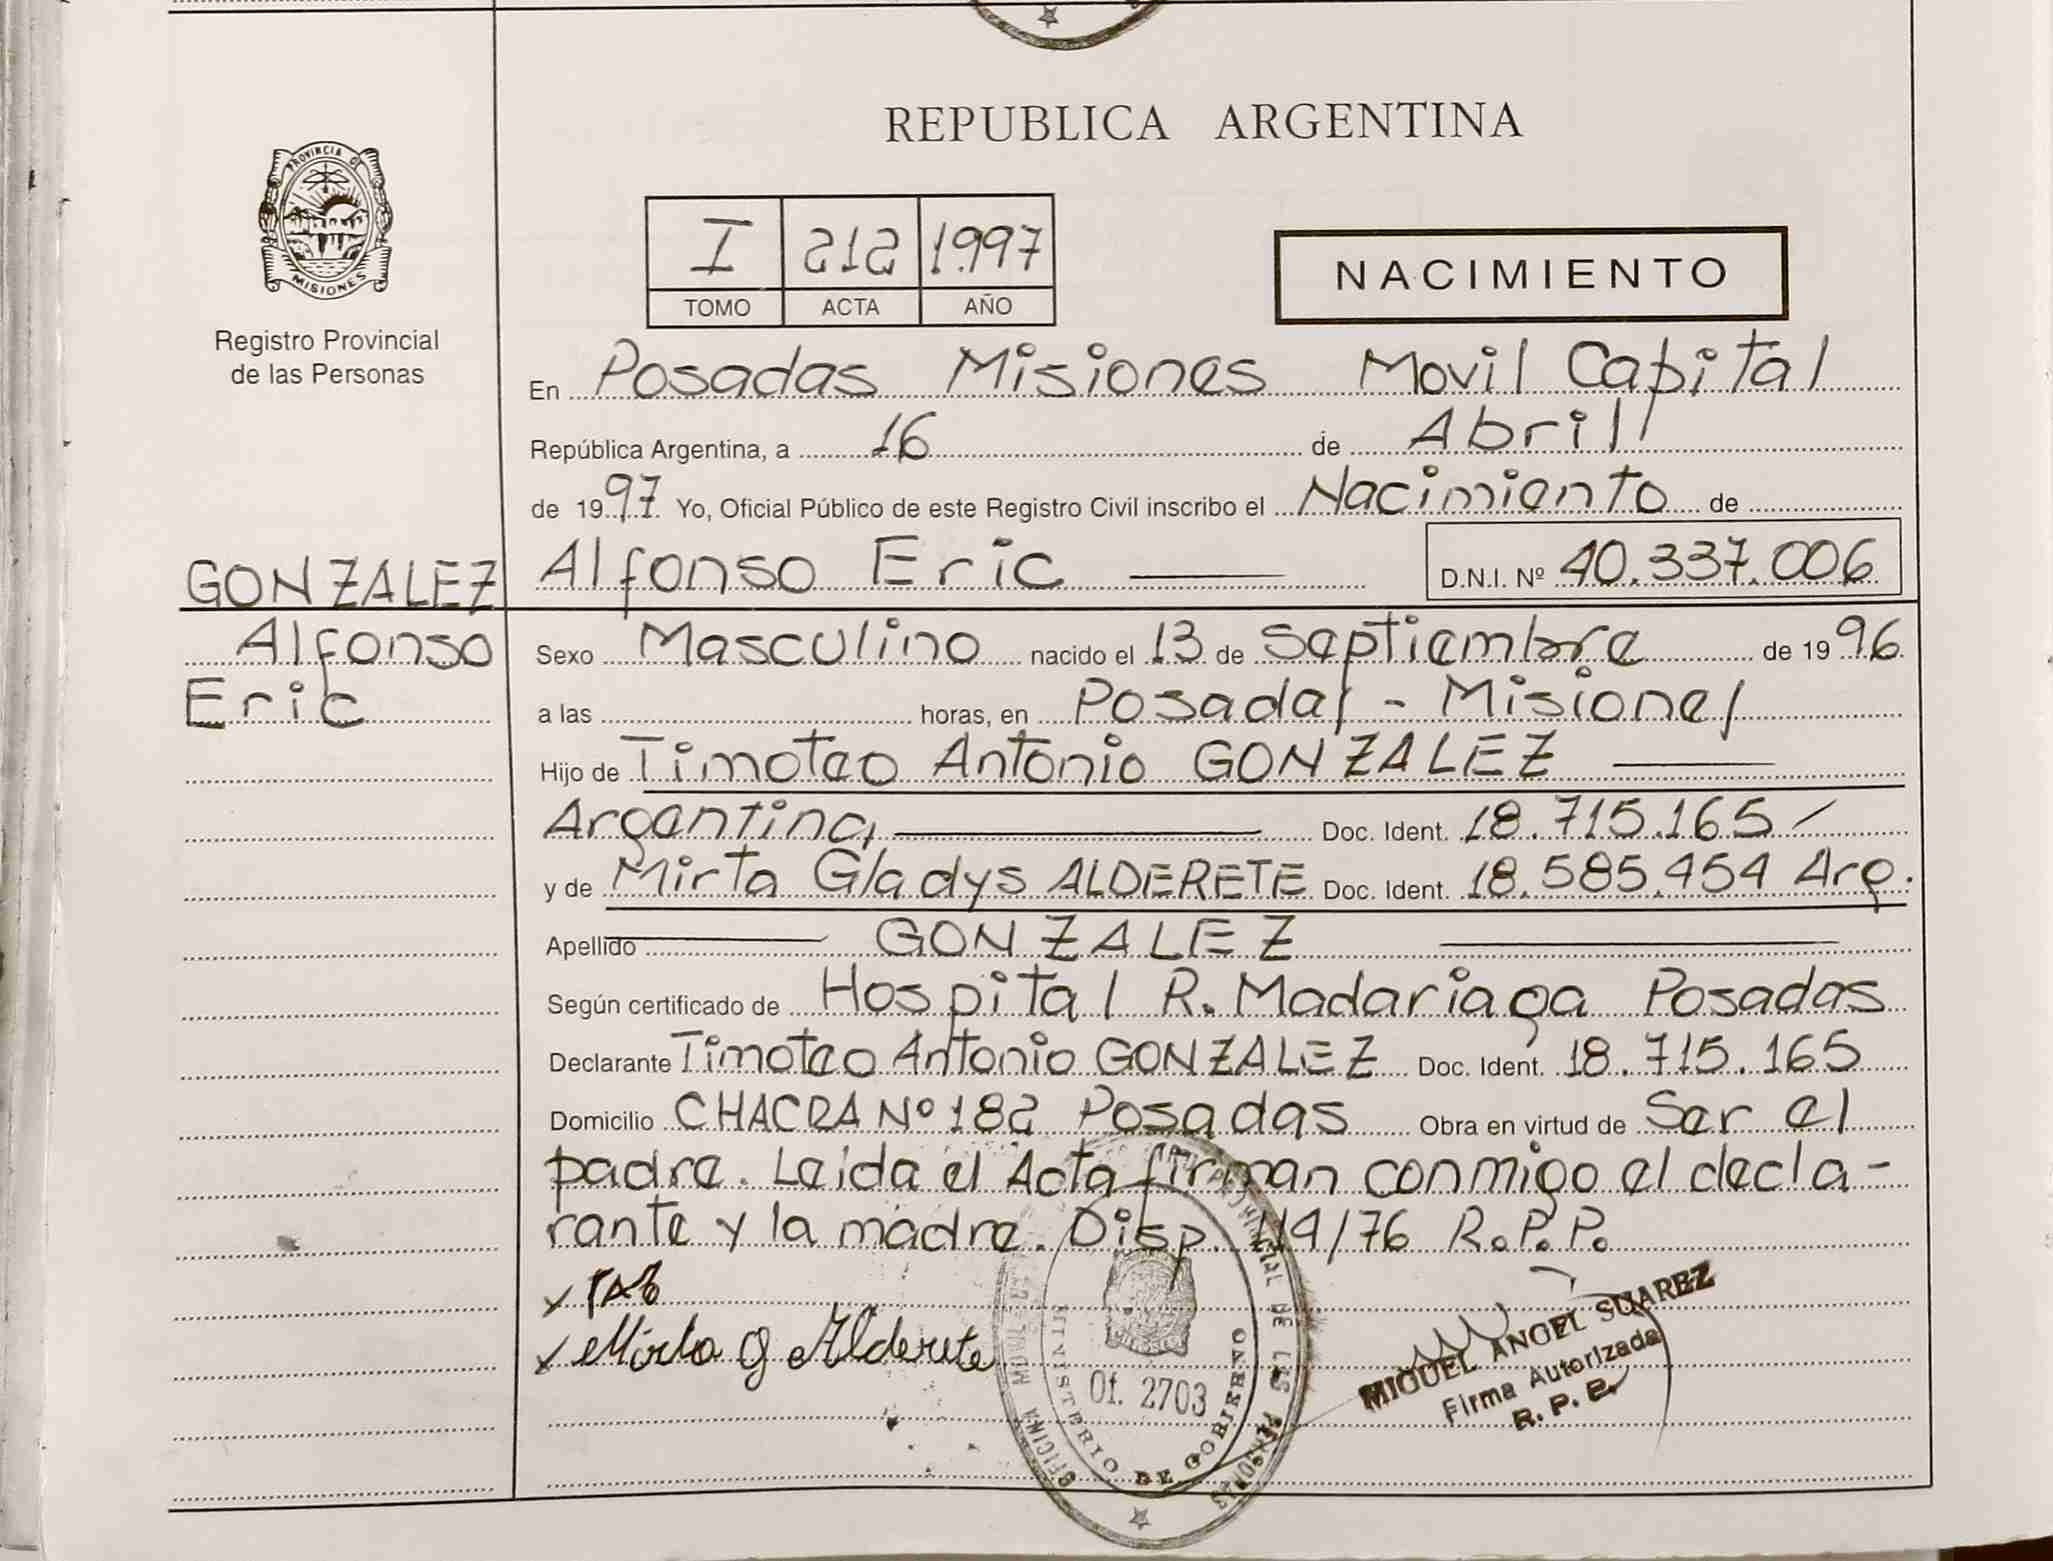 REPUBLICA ARGENTINA
PROVINCIA DE
MISIONES
Registro Provincial
de las Personas
I 212 1.997
TOMO ACTA AÑO
NACIMIENTO
En Posadas Misiones Movil Capital
República Argentina, a 16 de Abril
de 1997 Yo, Oficial Público de este Registro Civil inscribo el Nacimiento de
GONZALEZ Alfonso Eric D.N.I. Nº 40.337.006
Alfonso Sexo Masculino nacido el 13 de Septiembre de 1996
Eric a las horas, en Posadas - Misiones
Hijo de Timoteo Antonio GONZALEZ
Argentina, Doc. Ident. 18.715.165
y de Mirta Gladys ALDERETE Doc. Ident. 18.585.454 Arg.
Apellido GONZALEZ
Según certificado de Hospital R. Madariaga Posadas
Declarante Timoteo Antonio GONZALEZ Doc. Ident. 18.715.165
Domicilio CHACRA Nº 182 Posadas Obra en virtud de Ser el
padre. Leida el Acta firman conmigo el decla-
rante y la madre. Disp. 114/76 R.P.P.
Mirta g Alderete
Of. 2703
MINISTERIO DE GOBIERNO
MIGUEL ANGEL SUAREZ
Firma Autorizada
R. P. P.